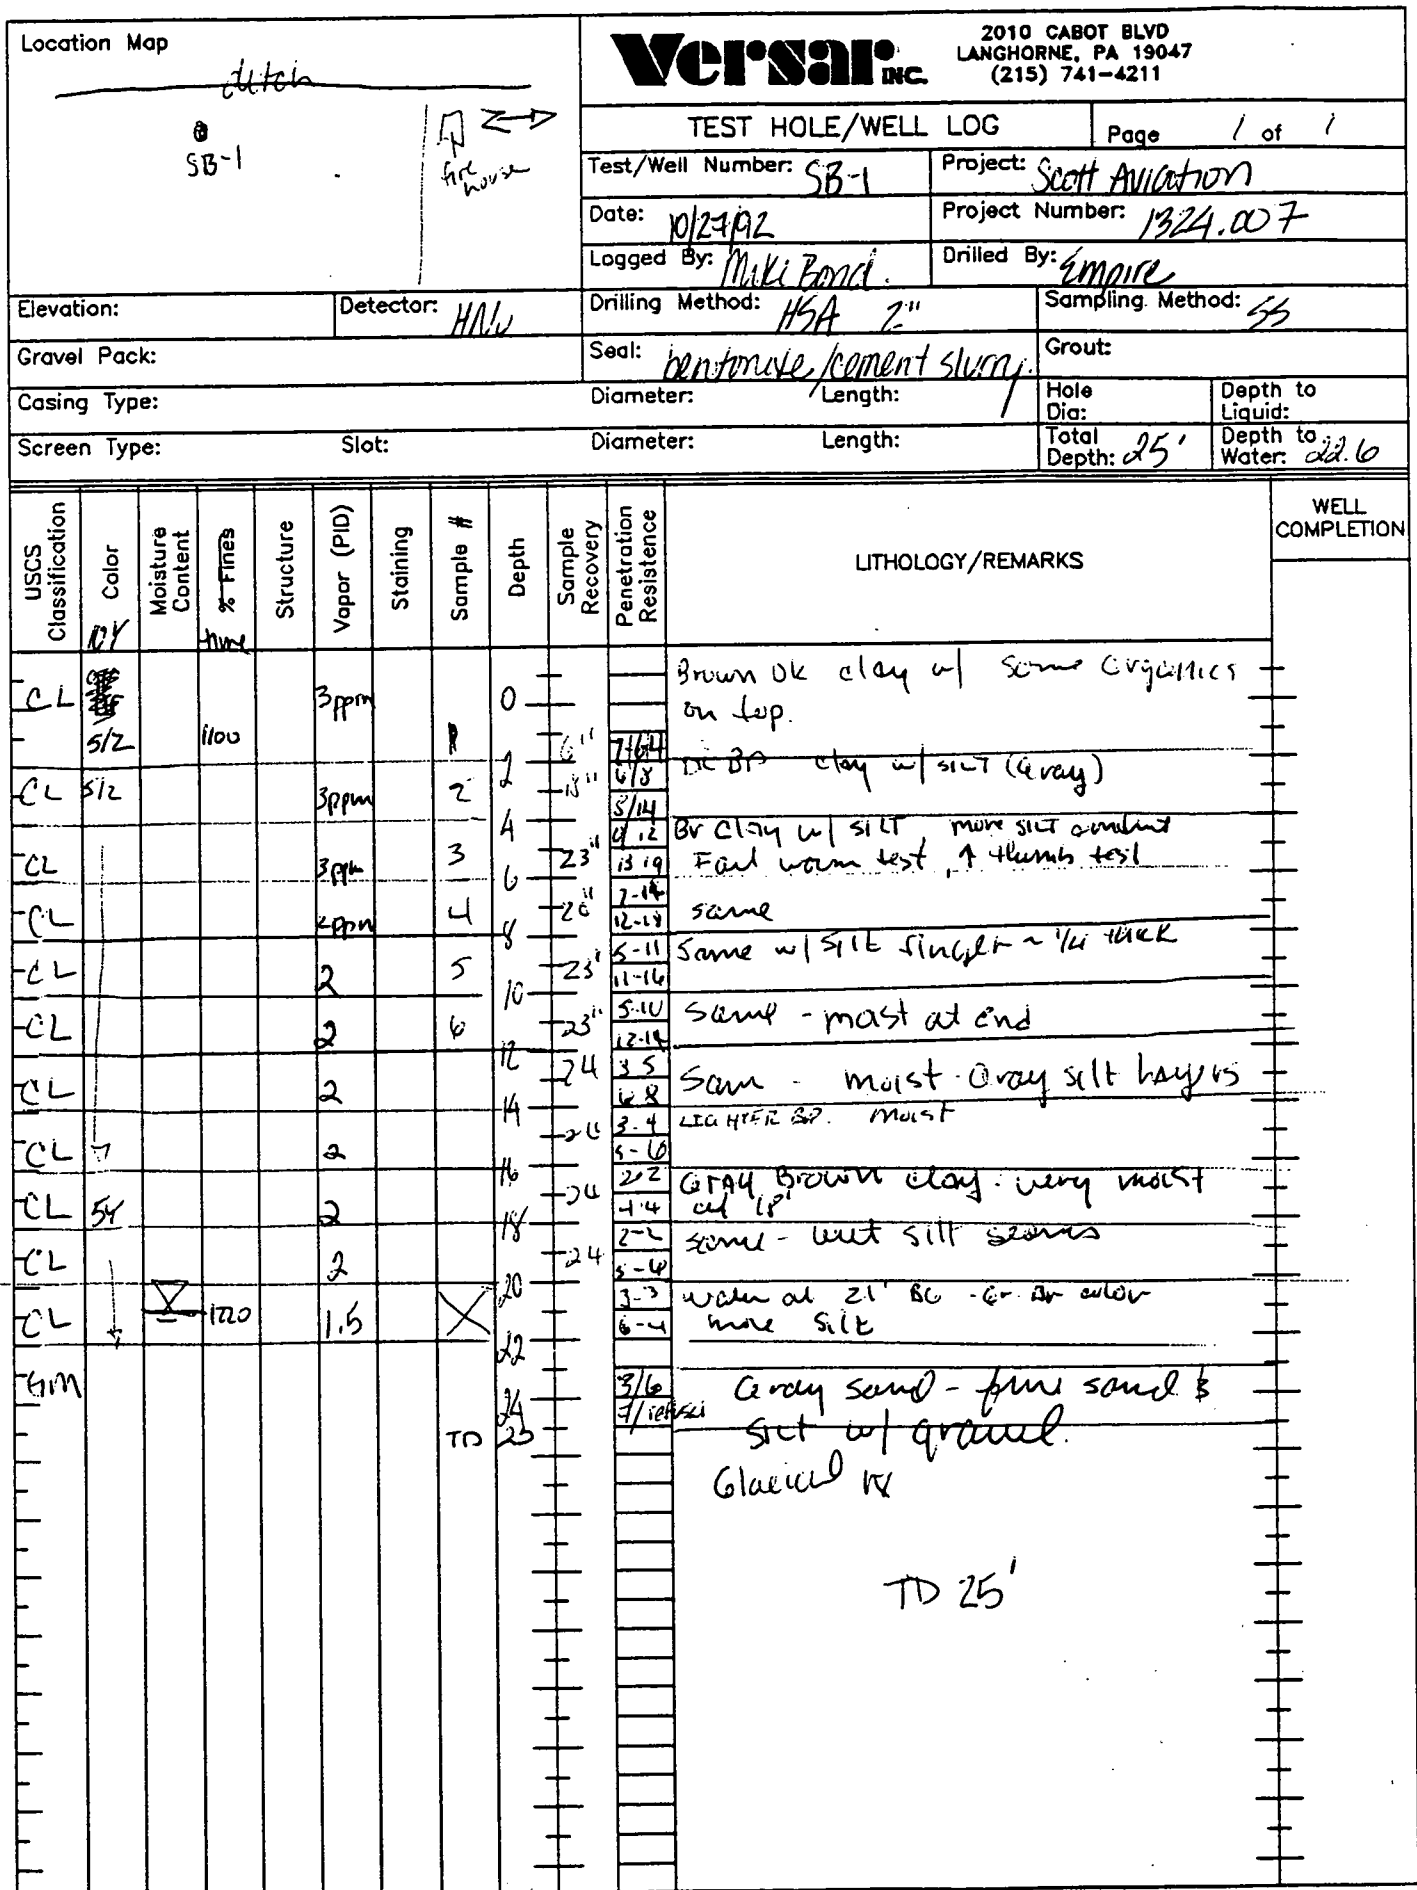 Location Map
ditch
SB-1
fire house
Versar INC.
2010 CABOT BLVD
LANGHORNE, PA 19047
(215) 741-4211
TEST HOLE/WELL LOG
Page 1 of 1
Test/Well Number: SB-1
Project: Scott Aviation
Date: 10/27/92
Project Number: 1324.007
Logged By: Miki Bond.
Drilled By: Empire
Elevation:
Detector: HNU
Drilling Method: HSA 2"
Sampling Method: SS
Gravel Pack:
Seal: bentonite/cement slurry.
Grout:
Casing Type:
Diameter:
Length:
Hole Dia:
Depth to Liquid:
Screen Type:
Slot:
Diameter:
Length:
Total Depth: 25'
Depth to Water: 22.6
USCS Classification
Color 10Y
Moisture Content
% Fines time
Structure
Vapor (PID)
Staining
Sample #
Depth
Sample Recovery
Penetration Resistence
LITHOLOGY/REMARKS
WELL COMPLETION
CL 3ppm 0 Brown Dk clay w/ some organics
on top.
5/2 1100 1 6"
CL 5/2 3ppm 2 2 18" 6/8 clay w/ SILT (Gray)
8/14
4 12 Br Clay w/ SILT, more SILT
CL 3ppm 3 6 23" 13 19 Fail worm test, thumb test
7-14
CL 4 8 20" 12-18 same
5-11 Same w/ SILT ~ 1/4 thick
CL 2 5 10 23" 11-16
5-10 Same - moist at end
CL 2 6 12 23"
24 3 5 Sam - moist Gray silt layers
CL 2 14 6 8
3-4 LIGHTER BR. moist
CL 2 16 5-6
2 2 Gray Brown clay. very moist
CL 5Y 2 18 24 4-4 at 18'
2-2 same - wet silt seams
CL 2 20 24
3-3 water at 21' BG - Gr Br color
CL 1220 1.5 22 6-4 more silt
GM 3/6 Gray sand - fine sand &
24 7/refusal silt w/ gravel.
TD 25
Glacial
TD 25'